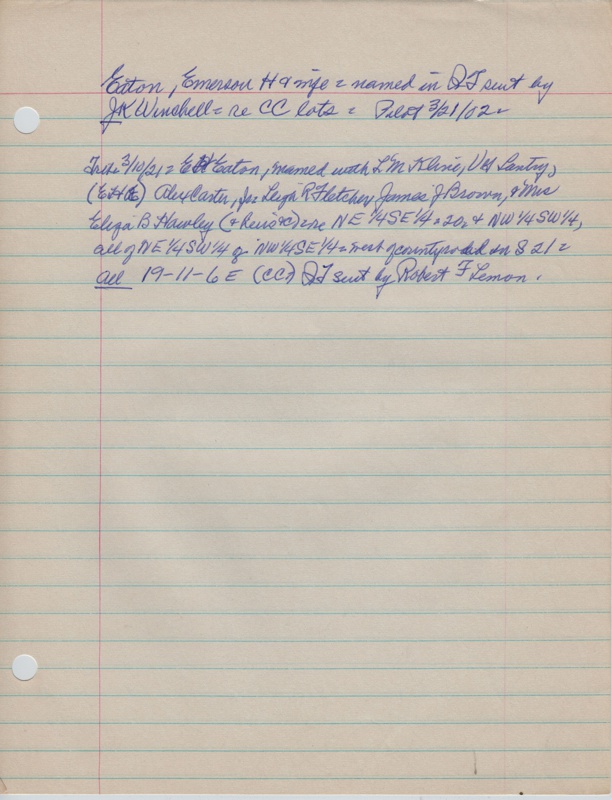 Eaton, Emerson H & wife = named in QT suit by
JK Winshell = re CC lots = Pilot 3/21/02 =
Trib = 3/10/21 = EH Eaton, named with L M Kline, VH Lantry,
(EHE) Alex Carter, Jos Leigh R Fletcher, James J Brown, & Mrs
Eliza B Hawley (& heirs &c) = re NE 1/4 SE 1/4 = 20, & NW 1/4 SW 1/4,
all of NE 1/4 SW 1/4 & NW 1/4 SE 1/4 = west of county road in S 21 =
all 19-11-6 E (CC) QT suit by Robert F Lemon.